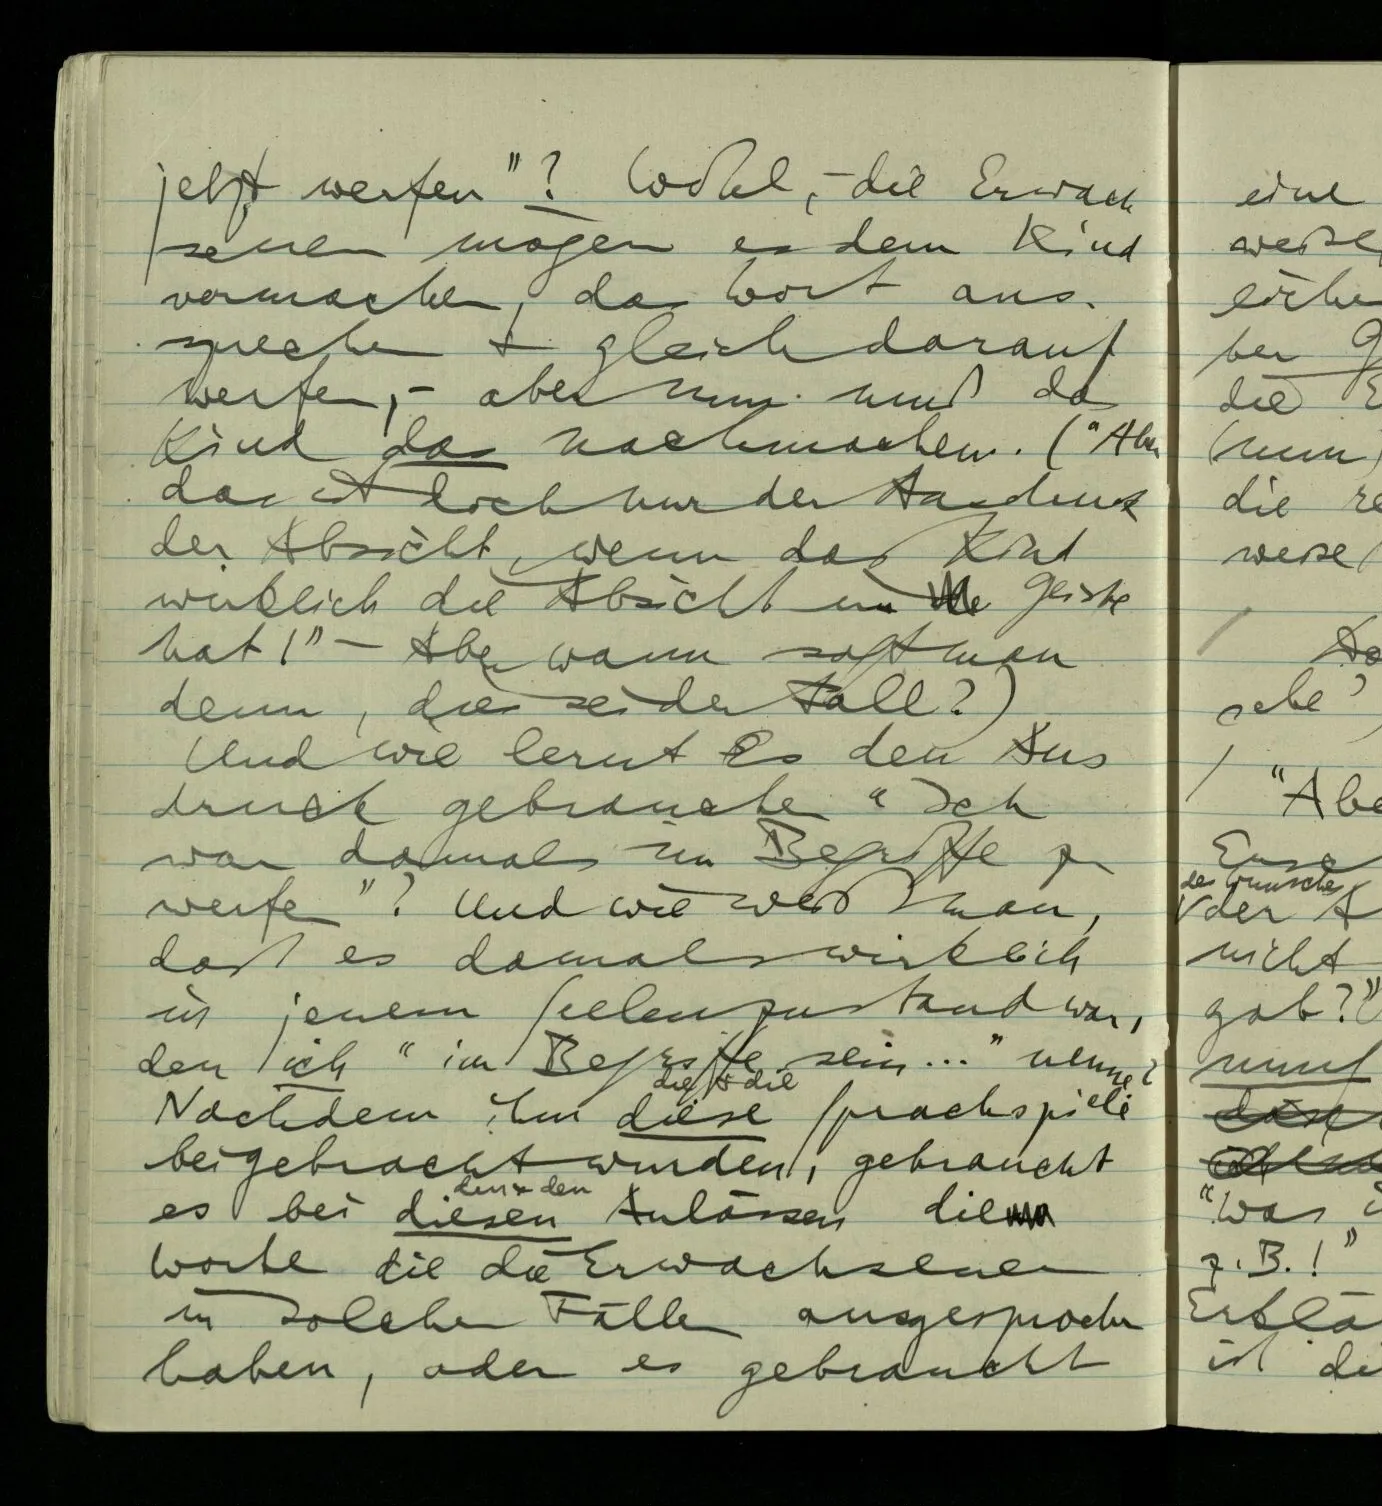 jetzt werfen"? Wohl, – die Erwach
senen mögen es dem Kind
vormachen, das Wort aus-
sprechen + gleich darauf
werfen, – aber nun muß das
Kind das nachmachen. ("Aber
das ist doch nur der Ausdruck
der Absicht, wenn das Kind
wirklich die Absicht im Geiste
hat!" – Aber wann sagt man
denn, dies sei der Fall?)
Und wie lernt es den Aus
druck gebrauchen "Ich
war damals im Begriffe zu
werfen"? Und wie weiß man,
daß es damals wirklich
in jenem Seelenzustand war,
den ich "im Begriffe sein..." nenne?
die + die
Nachdem ihm diese Sprachspiele
beigebracht wurden, gebraucht
den + den
es bei diesen Anlässen die
Worte die die Erwachsenen
in solchen Fällen ausgesprochen
haben, oder es gebraucht
eine
weise
ber
die
(nun)
die
weise
sehe'
"Abe
des Wunsches
der
nicht
gab?"
muß
"Was
z.B.!"
Erklä
ist di